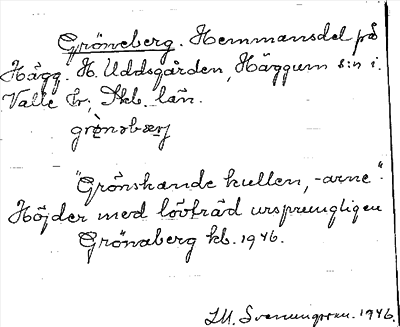 Gröneberg. Hemmansdel på
Hägg. H. Uddsgården, Häggum s:n i.
Valle hr, Skb. län.
grònəbærj
"Grönskande kullen, -arne".
Höjder med lövträd ursprungligen
Grönaberg kb. 1946.
1946.